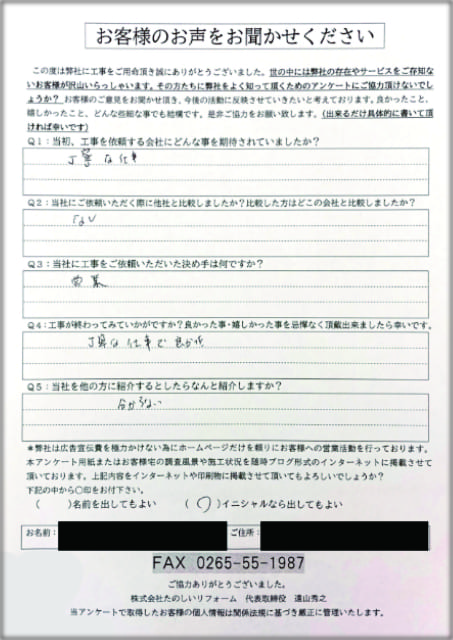 お客様のお声をお聞かせください
この度は弊社に工事をご用命頂き誠にありがとうございました。世の中には弊社の存在やサービスをご存知な
いお客様が沢山いらっしゃいます。その方たちに弊社をよく知って頂くためのアンケートにご協力頂けないでし
ょうか？ お客様のご意見をお聞かせ頂き、今後の活動に反映させていきたいと考えております。良かったこと、
嬉しかったこと、どんな些細な事でも結構です。是非ご協力をお願い致します。（出来るだけ具体的に書いて頂
ければ幸いです）
Q１：当初、工事を依頼する会社にどんな事を期待されていましたか？
丁寧な仕事
Q２：当社にご依頼いただく際に他社と比較しましたか？比較した方はどこの会社と比較しましたか？
ない
Q３：当社に工事をご依頼いただいた決め手は何ですか？
Q４：工事が終わってみていかがですか？良かった事・嬉しかった事を忌憚なく頂戴出来ましたら幸いです。
丁寧な仕事で
Q５：当社を他の方に紹介するとしたらなんと紹介しますか？
分からない
＊弊社は広告宣伝費を極力かけない為にホームページだけを頼りにお客様への営業活動を行っております。
本アンケート用紙またはお客様宅の調査風景や施工状況を随時ブログ形式のインターネットに掲載させて
頂いております。上記内容をインターネットや印刷物に掲載させて頂いてもよろしいでしょうか？
下記の中から〇印をお付下さい。
（　　）名前を出してもよい　（ 〇 ）イニシャルなら出してもよい
お名前： ご住所：
FAX 0265-55-1987
ご協力ありがとうございました。
株式会社たのしいリフォーム　代表取締役　遠山秀之
当アンケートで取得したお客様の個人情報は関係法規に基づき厳正に管理いたします。